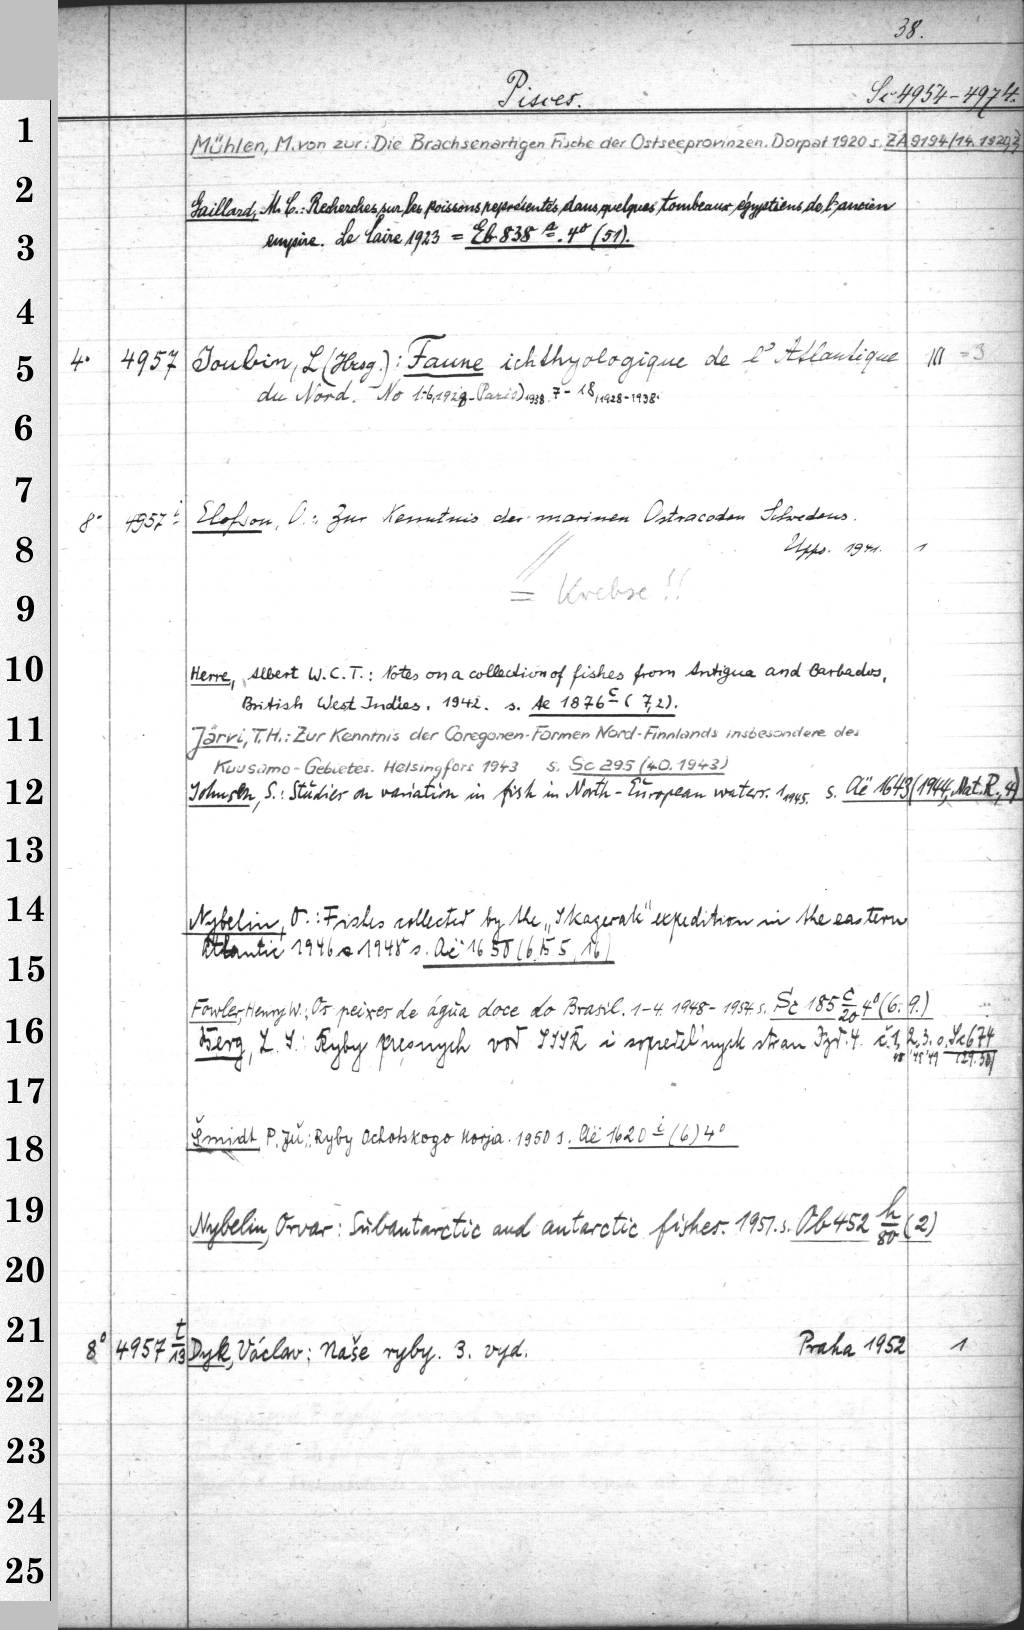 38.
Pisces.
Sc 4954-4974.
1
Mühlen, M. von zur: Die Brachsenartigen Fische der Ostseeprovinzen. Dorpat 1920 s. ZA 9194/14. 1920,
2
Gaillard, M. C.: Recherches sur les poissons représentés dans quelques tombeaux égyptiens de l'ancien
3
empire. Le Caire 1923 = Eb 838 4° (51).
4
5
4° 4957 Joubin, L (Hrsg.): Faune ichthyologique de l'Atlantique III = 3
du Nord. No 1-6, Paris) 1938. 7-18, 1928-1938.
6
7
8° 4957 Elofson, O.: Zur Kenntnis der marinen Ostracoden Schwedens.
8
Upps. 1941. 1
9
= Krebse!!
10
Herre, Albert W.C.T.: Notes on a collection of fishes from Antigua and Barbados,
British West Indies. 1942. s. Ae 1876 c (7,2).
11
Järvi, T.H.: Zur Kenntnis der Coregonen-Formen Nord-Finnlands insbesondere des
Kuusamo-Gebietes. Helsingfors 1943 s. Sc 295 (40. 1943)
12
Johnsen, S.: Studies on variation in fish in North-European waters. 1 1945. s. Aë 1643 (1944, Nat. R., 4)
13
14
Nybelin, O.: Fishes collected by the „Skagerak" expedition in the eastern
15
Atlantic 1946 s. Aë 1650 (6. B 5, 16)
Fowler, Henry W.: Os peixes de água doce do Brasil. 1-4. 1948-1954 s. Sc 185 c/20 4° (6. 9.)
16
Berg, L. S.: Ryby presnych vod SSSR i sopredel'nych stran Izd. 4. č. 1, 2, 3. s. Sc 674
48 '48 '49 (29. 30)
17
18
Šmidt P. Jŭ.: Ryby Ochotskogo morja. 1950 s. Aë 1620 i (6) 4°
19
Nybelin, Orvar: Subantarctic and antarctic fishes. 1951. s. Ob 452 h/80 (2)
20
21
8° 4957 t/13 Dyk, Václav: Naše ryby. 3. vyd. Praha 1952 1
22
23
24
25